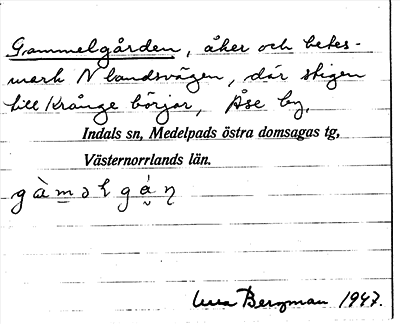 Gammelgården, åker och betes-
mark N landsvägen, där stigen
till Krånge börjar, Åse by,
Indals sn, Medelpads östra domsagas tg,
Västernorrlands län.
Bergman 1947.